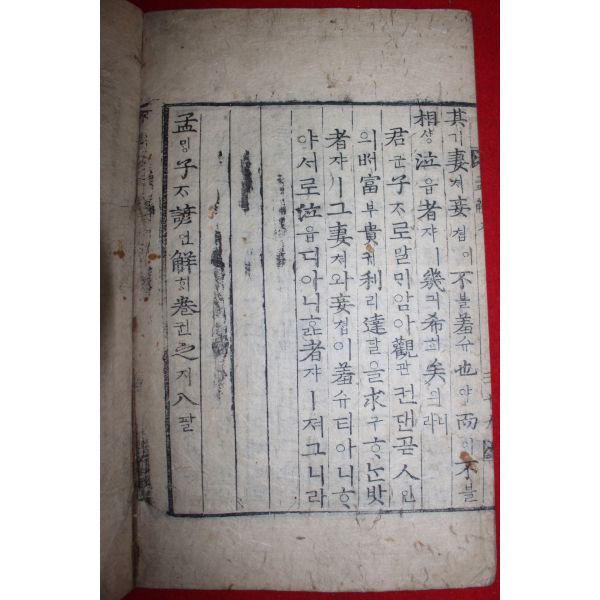 其기妻쳐妾쳡이不블羞슈也야而이不블
相샹泣읍者쟈ㅣ幾긔希희矣의니라
君군子ᄌᆞ로말ᄆᆡ암아觀관컨댄곧人인
의ᄡᅥ富부貴귀利리達달을求구ᄒᆞᄂᆞᆫ밧
者쟈ㅣ그妻쳐와妾쳡이羞슈티아니ᄒᆞ며
야서로泣읍디아니ᄒᆞᆯ者쟈ㅣ져그니라
孟ᄆᆡᆼ子ᄌᆞ諺언解ᄒᆡ卷권之지八팔